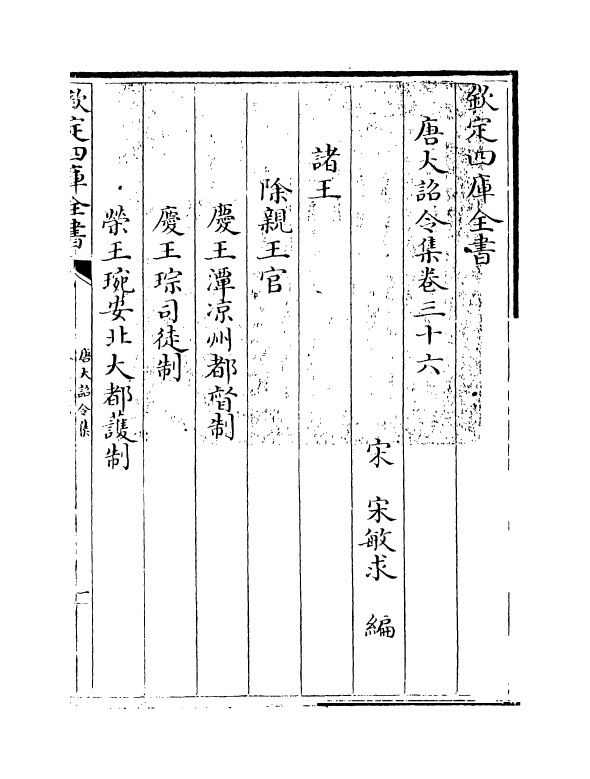 欽定四庫全書
唐大詔令集卷三十六
宋 宋敏求 編
諸王
除親王官
慶王潭凉州都督制
慶王琮司徒制
榮王琬安北大都護制
欽定四庫全書
唐大詔令集
一